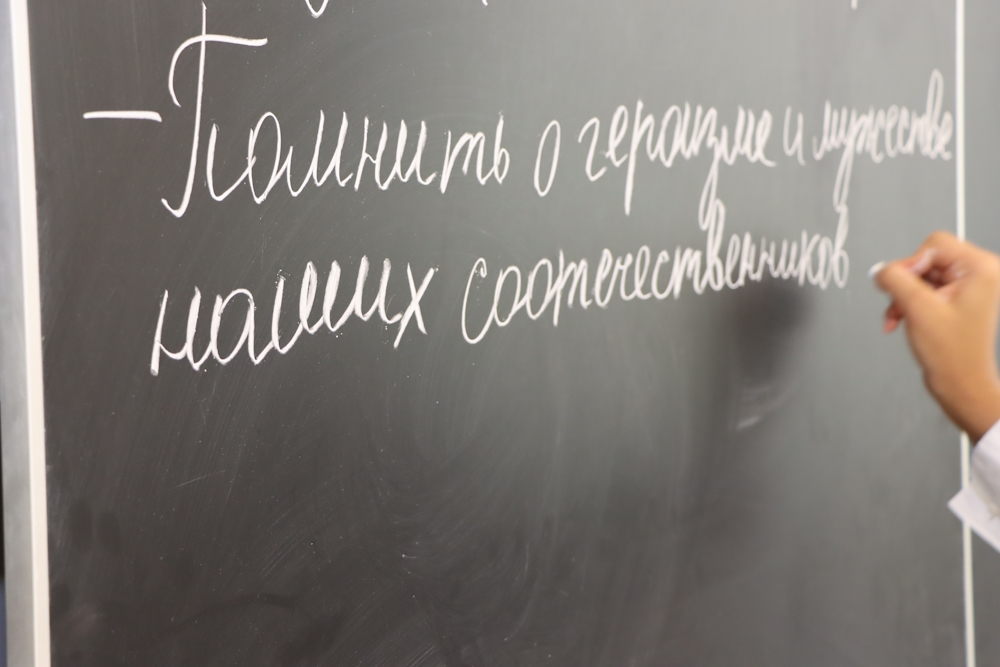 - Помнить о героизме и мужестве
наших соотечественников